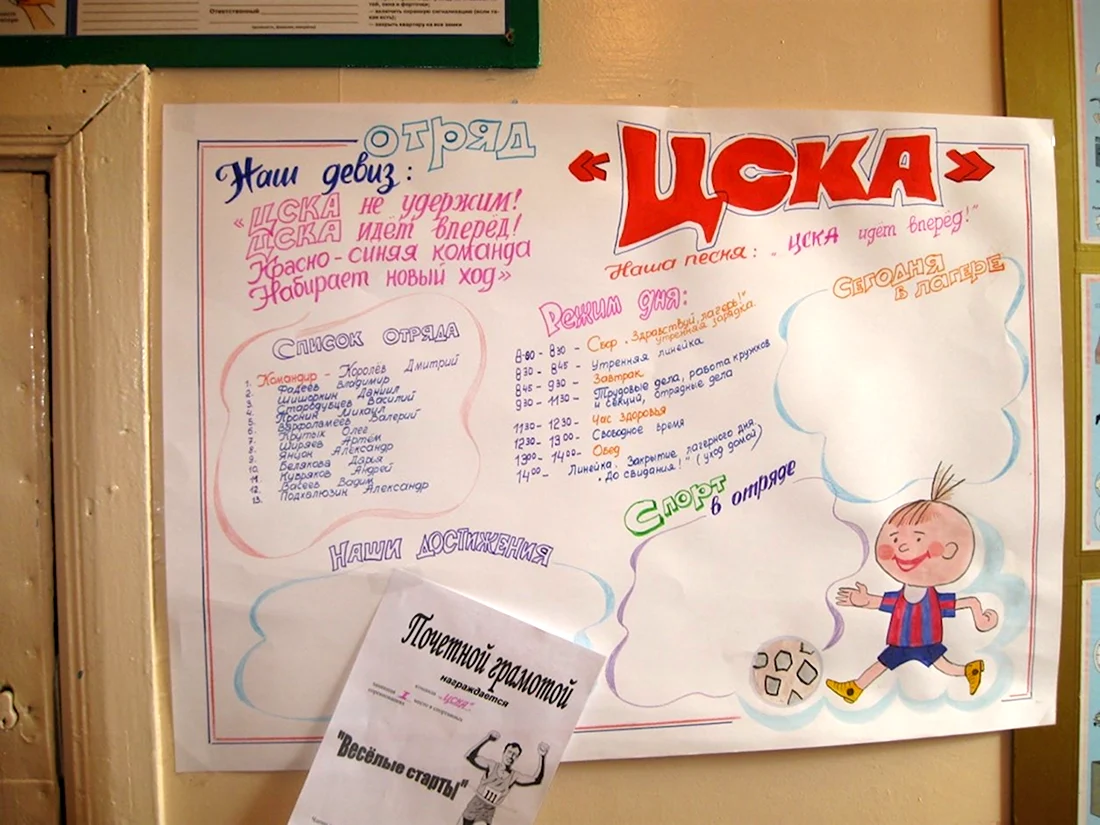 Ответственный
отряд
« ЦСКА »
Наш девиз:
«ЦСКА не удержим!
ЦСКА идёт вперёд!
Красно-синяя команда
Набирает новый ход»
Наша песня: „ЦСКА идёт вперёд!"
Сегодня
в лагере
Список отряда
1. Командир - Королёв Дмитрий
2. Фадеев Владимир
3. Шишоркин Даниил
4. Стародубцев Василий
5. Пронин Михаил
6. Варфоламеев Валерий
7. Крутых Олег
8. Ширяев Артём
9. Янцон Александр
10. Белякова Дарья
11. Кувряков Андрей
12. Васеев Вадим
13. Подколюзин Александр
Режим дня:
8-00 - 8 30 - Сбор. Здравствуй, лагерь!"
утренняя зарядка.
8 30 - 8 45 - Утренняя линейка
8 45 - 9 30 - Завтрак
9 30 - 11 30 - Трудовые дела, работа кружков
и секций, отрядные дела
11 30 - 12 30 - Час здоровья
12 30 - 13 00 - Свободное время
13 00 - 14 00 - Обед
14 00 - Линейка. Закрытие лагерного дня
„До свидания!" (уход домой)
Спорт
в отряде
Наши достижения
Почетной грамотой
награждается
команда „ЦСКА"
занявшая I место в спортивных
соревнованиях
"Весёлые старты"
111